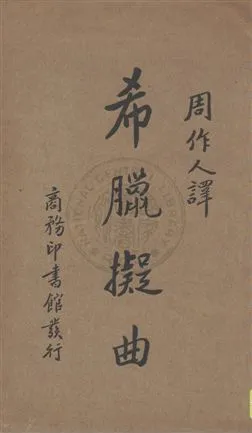 周作人譯
希臘擬曲
商務印書館發行
NATIONAL CENTRAL LIBRARY